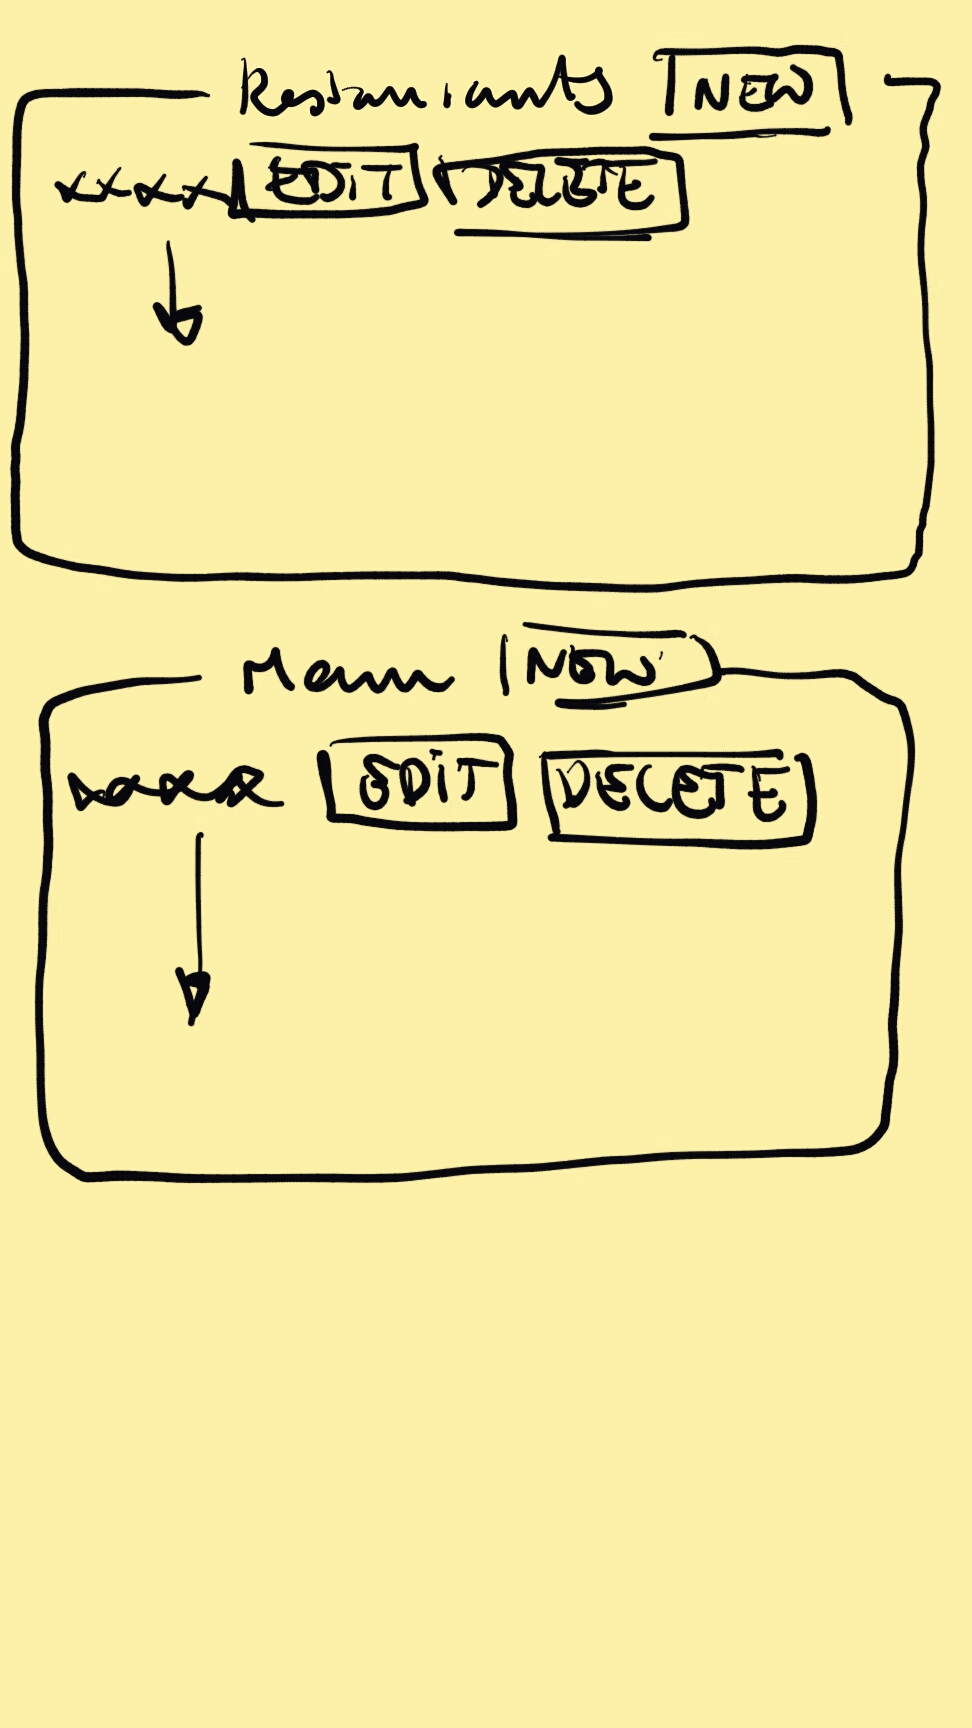 Restaurants NEW
xxxx EDIT DELETE
Menu NEW
xxxx EDIT DELETE